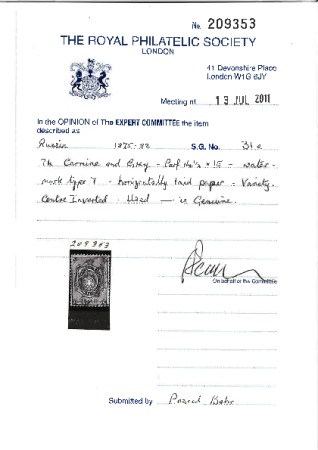 No. 209353
THE ROYAL PHILATELIC SOCIETY
LONDON
41 Devonshire Place
London W1G 6JY
Meeting of 13 JUL 2011
In the OPINION of The EXPERT COMMITTEE the item
described as
Russia 1875-82 S.G. No. 31a
7k Carmine and Grey - Perf 14½ x 15 - water-
mark type 7 - horizontally laid paper - Variety
Centre Inverted. Used — is Genuine.
209353
On behalf of the Committee
Submitted by